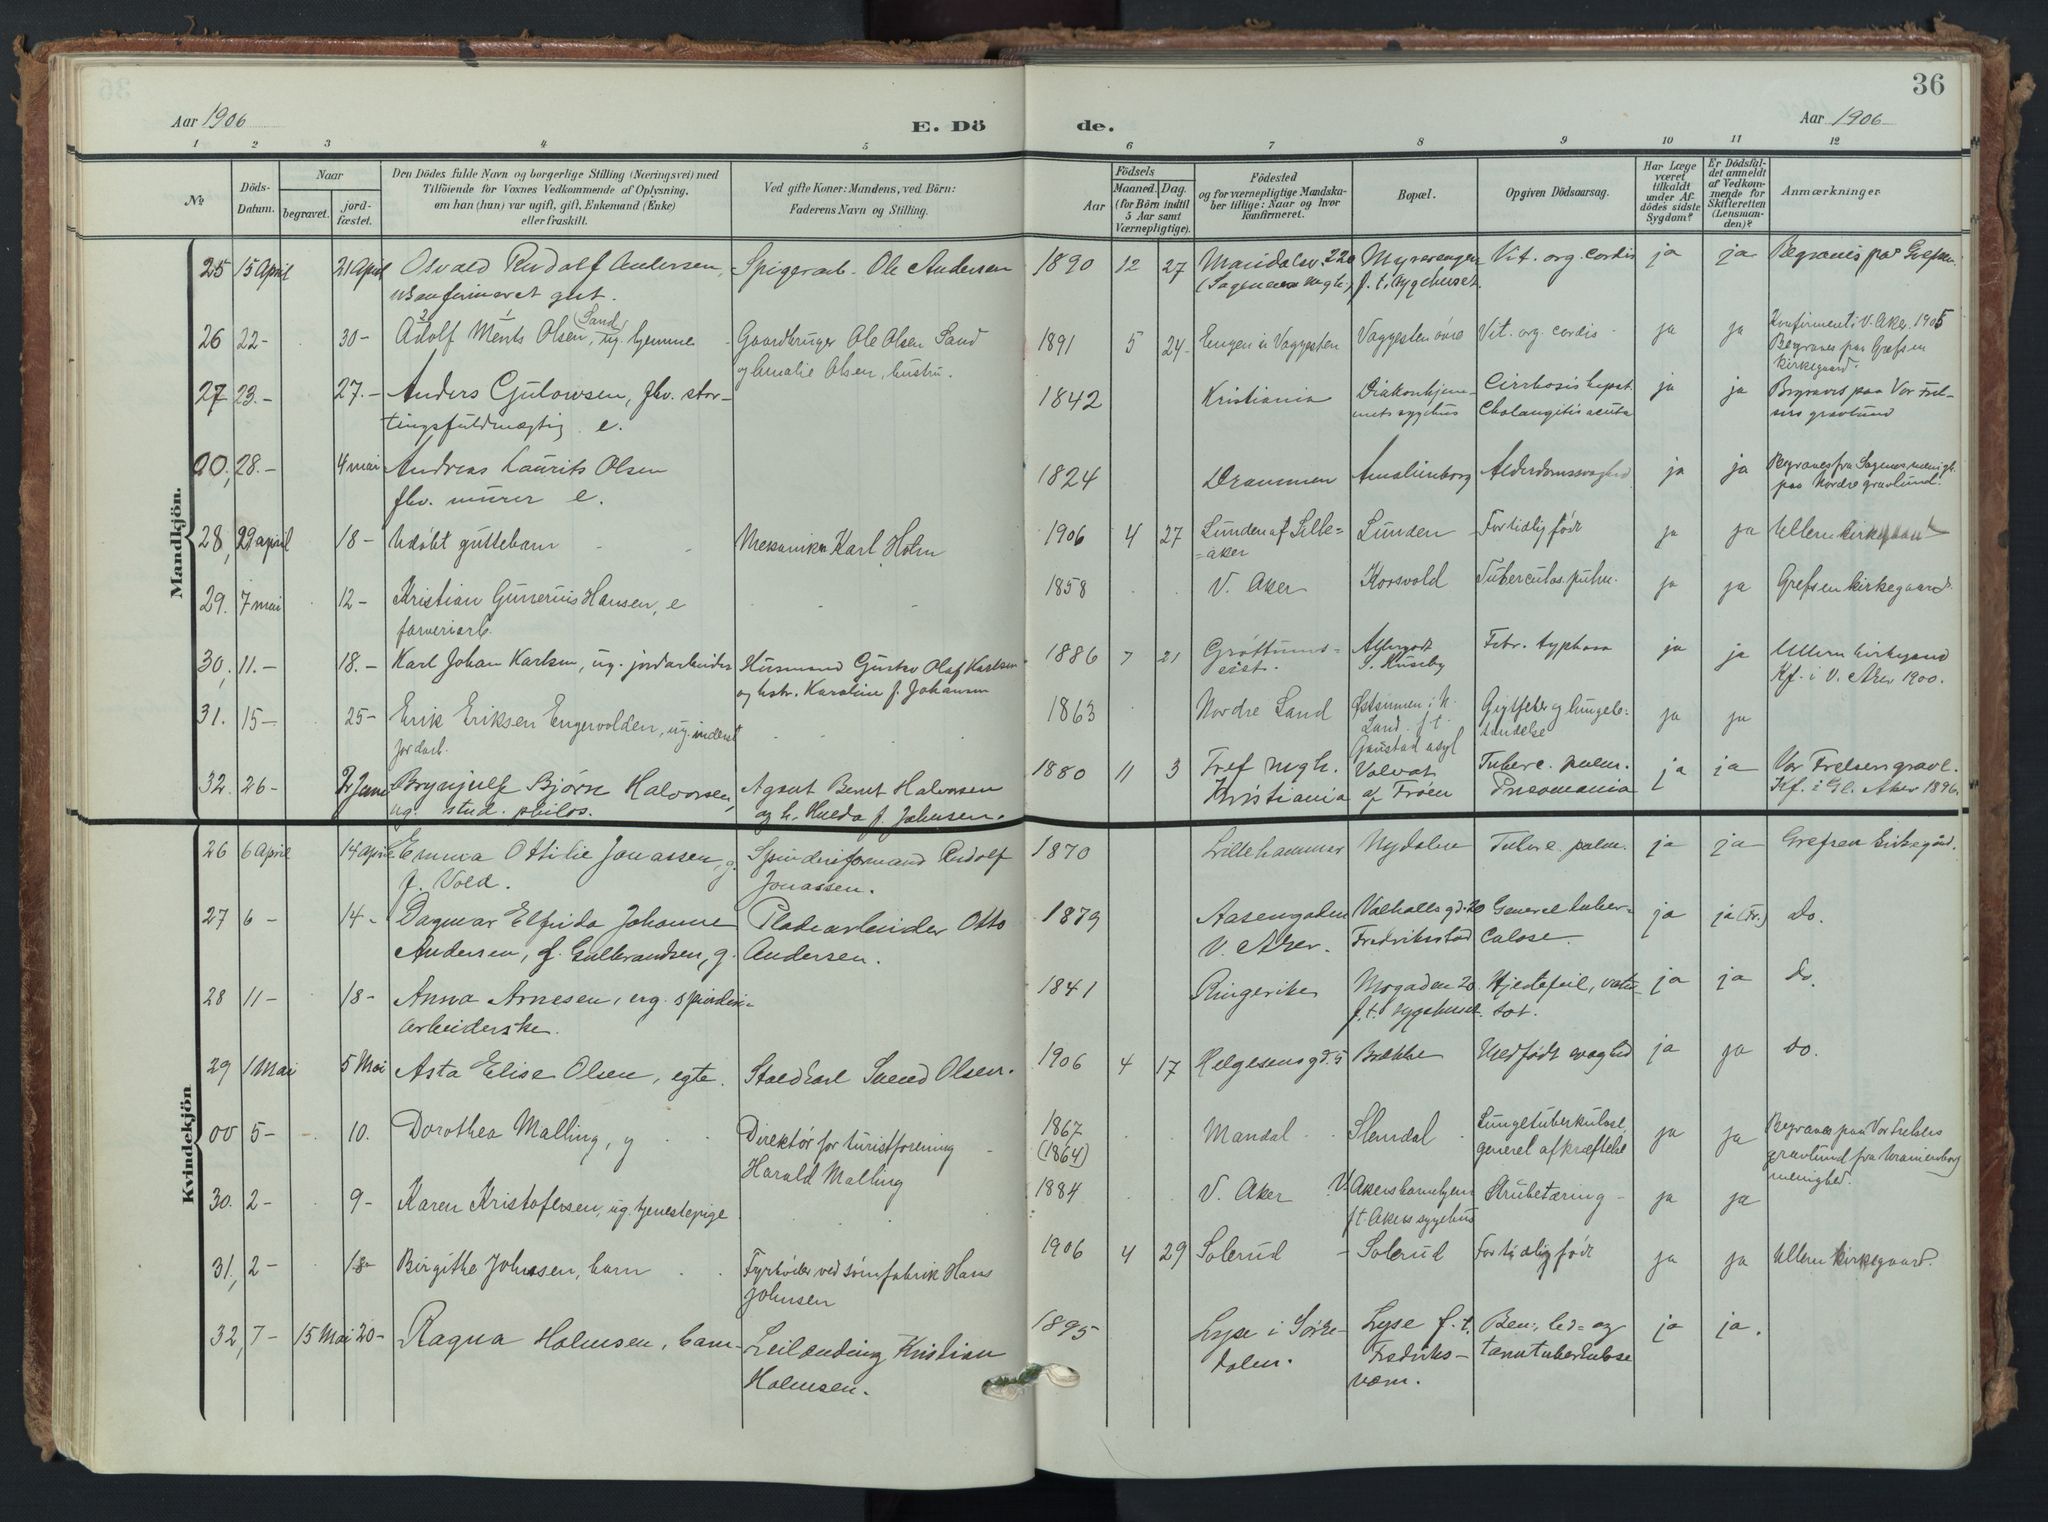 36
Aar 1906
E. Dö
de.
Aar 1906
1 2 3 4 5 6 7 8 9 10 11 12
№
Döds-
Datum.
Naar
begravet.
jord-
fæstet.
Den Dödes fulde Navn og borgerlige Stilling (Næringsvei) med
Tilföiende for Voxnes Vedkommende af Oplysning,
om han (hun) var ugift, gift, Enkemand (Enke)
eller fraskilt.
Ved gifte Koner: Mandens, ved Börn:
Faderens Navn og Stilling.
Födsels
Aar
Maaned.
Dag.
(for Börn indtil
5 Aar samt
Værnepligtige).
Födested
og for værnepligtige Mandska-
ber tillige: Naar og hvor
konfirmeret.
Bopæl.
Opgiven Dödsaarsag.
Har Læge
været
tilkaldt
under Af-
dödes sidste
Sygdom?
Er Dödsfal-
det anmeldt
af Vedkom-
mende for
Skifteretten
(Lensman-
den)?
Anmærkninger
Mandkjön.
25 15 April 21 April Osvald Rudolf Andersen, Spigerarb. Ole Andersen 1890 12 27 Maridalsv. 220 Myrerengen Vit. org. cordis ja ja Begraves paa Grefsen
ukonfirmeret gut. (Sagenes mgh.) f. t. sygehuset.
26 22- 30- Adolf Ments Olsen (Sand), ug. hjemme Gaardbruger Ole Olsen Sand 1891 5 24- Engen u. Vaggesten Vaggesten övre Vit. org. cordis ja ja Konfirmert i V. Aker 1905
og Amalie Olsen, hustru. Begraves paa Grefsen
kirkegaard.
27 23.- 27.- Anders Gulowsen, fhv. stor- 1842 Kristiania Diakonhjem- Cirrhosis hepat. ja ja Begraves paa Vor Frel-
tingsfuldmægtig e. mets sygehus Cholangitis acuta sers gravlund
00, 28.- 4 mai Andreas Laurits Olsen 1824 Drammen Amalienborg Alderdomssvaghed ja ja Begraves fra Sagenes menigh.
fhv. murer e. paa Nordre gravlund.
28, 29 april 18- Udøbt guttebarn Mekaniker Karl Holm 1906 4 27 Lunden af Lille- Lunden For tidlig født ja ja Ullern kirkegaard
aker
29. 7 mai 12- Kristian Gunerius Hansen, e 1858 V. Aker Korsvold Tuberculos. pulm. ja ja Grefsen kirkegaard
farveriarb.
30, 11.- 18.- Karl Johan Karlsen, ug. jordarbeider Husmand Gustav Olaf Karlsen 1886 7 21 Grøttums- Febr. typhosa ja ja Ullern kirkegaard
og hstr. Karoline f. Johansen eiet. S. Huseby Kf. i V. Aker 1900.
31. 15- 25- Erik Eriksen Engervolden, ug. inderst 1863 Nordre Land Østsinnen i N. Gigtfeber og lungebe-
jordarb. Land. f. t. tændelse ja ja
Gaustad asyl
32. 26- 2 Juni Brynjulf Bjørn Halvorsen, Agent Bernt Halvorsen 1880 11 3 Tref. mgh. Volvat Tuberc. pulm. ja ja Vor Frelsers gravl.
ug. stud. philos. og h. Hulda f. Johnsen. Kristiania af Frøen Pneomonia Kf. i Gl. Aker 1896.
Kvindekjön
26 6 April 14 april Emma Ottilie Jonassen, g. Spinderiformand Rudolf 1870 Lillehammer Nydalen Tuberc. pulm. ja ja Grefsen kirkegård.
f. Vold. Jonassen.
27 6- 14- Dagmar Elfrida Johanne Pladearbeider Otto 1879 Aasengaden Valhallsgd. 20 Generel tuber- ja ja (Fr.) do.
Andersen, f. Gulbrandsen, g. Andersen. V. Aker. Fredriksstad culose.
28 11- 18- Anna Arnesen, ug. spinderi- 1841 Ringerike Mogaden 20 Hjertefeil, ja ja do.
arbeiderske. f. t. sygehuset.
29 1 Mai 5 Mai Asta Elise Olsen, egte. Staldkarl Svend Olsen. 1906 4 17 Helgesens gd. 5 Brække Medfødt svaghed ja ja do.
00 5- 10. Dorothea Malling, g Direktør for turistforening 1867 Mandal Slemdal Lungetuberkulose, ja ja Begraves paa Vor Frelsers
Harald Malling (1864) generel afkræftelse gravlund fra Uranienborg
menighed.
30. 2- 9- Karen Kristofersen, ug. tjenestepige 1884 V. Aker V. Akers barnehjem Strubetæring - ja ja
f t Akers sygehus
31, 2- 18- Birgithe Johnsen, barn Fyrbøter ved sømfabrik Hans 1906 4 29 Solerud Solerud For tidlig født ja ja Ullern kirkegaard.
Johnsen
32, 7- 15 Mai 20- Ragna Holmsen, barn Leilænding Kristian 1895 Lyse i Sørke- Lyse f. t. Ben-, led- og ja ja.
Holmsen. dalen. Fredriks- tuberkulose
værn.